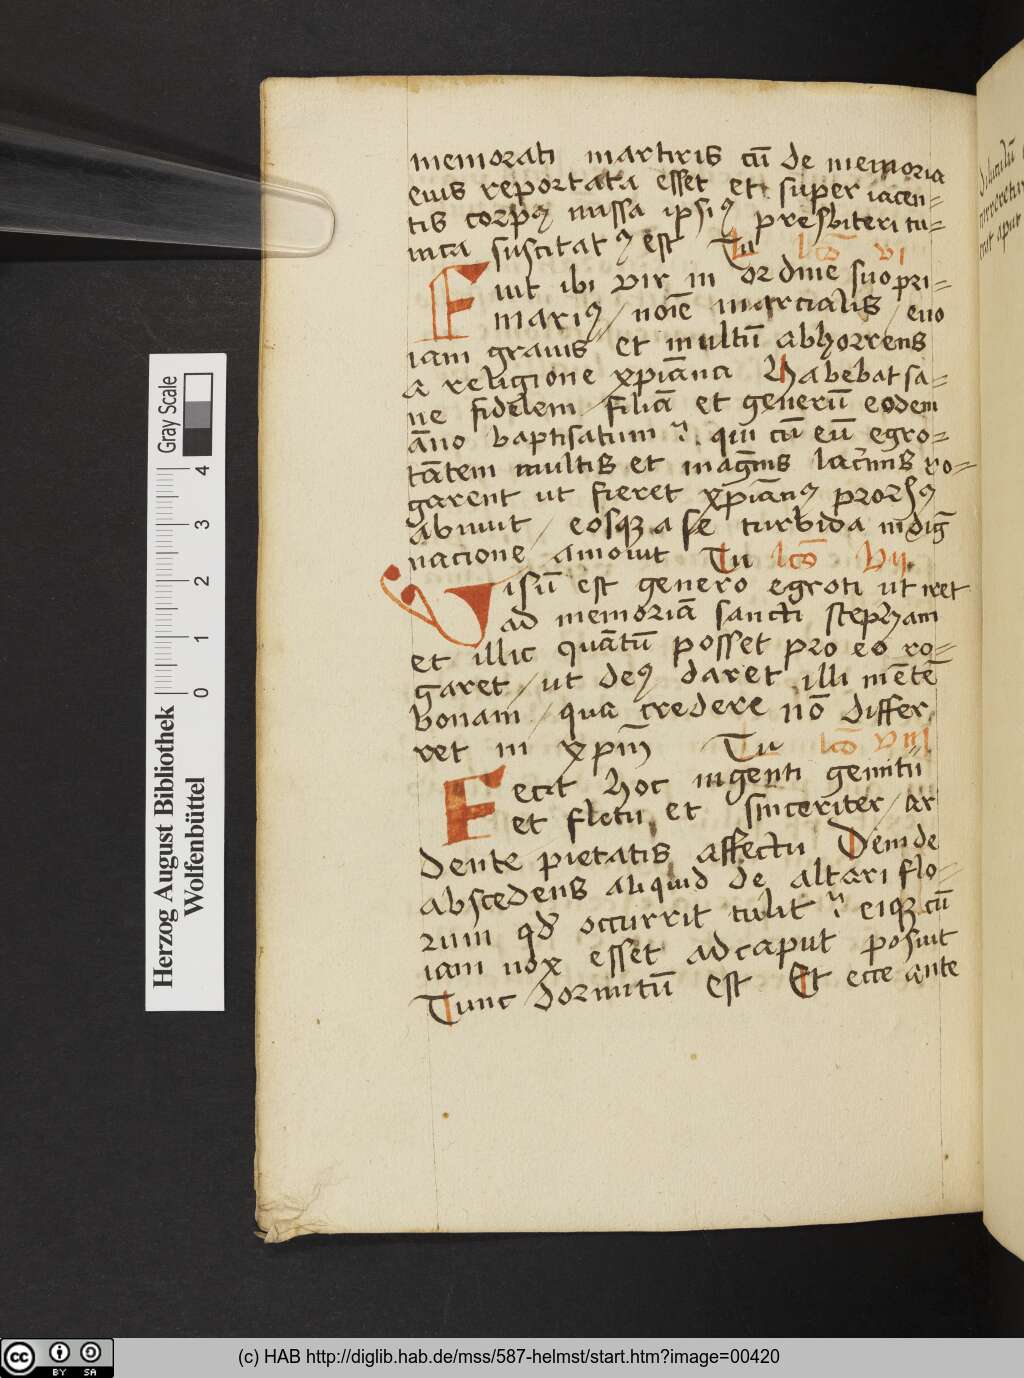 memorati martiris cū de memoria
euis reportata esset et super iacen=
tis corpꝯ missa ipsiꝯ presbiteri tu=
nica suscitatꝯ est Tu lcō vi
Fuit ibi vir in ordine suo pri=
mariꝯ / noīe marcialis / euo
iam grauis et multū abhorrens
a religione xp̄iana Habebat sa=
ne fidelem / filiā et generū eodem
āno baptisatum : qui cū eū egro=
tātem multis et magnis lacrimis ro=
garent ut fieret xp̄ianꝯ prorsꝯ
abnuit / eosqꝫ a se turbida indig
nacione amouit Tu lcō vii
Visū est genero egroti ut iret
ad memoriā sancti stephani
et illic quātū posset pro eo ro=
garet / ut deꝯ daret illi mētē
bonam / qua credere nō differ
ret in xp̄m Tu lcō viii
Fecit hoc ingenti gemitu
et fletu et sinceriter / ar
dente pietatis affectu Deinde
abscedens aliquid de altari flo=
rum qd̄ occurrit tulit : eiqꝫ cū
iam nox esset ad caput posuit
Tunc dormitū est Et ecce ante
Gray Scale
0 1 2 3 4
Herzog August Bibliothek
Wolfenbüttel
(c) HAB http://diglib.hab.de/mss/587-helmst/start.htm?image=00420
cc BY SA